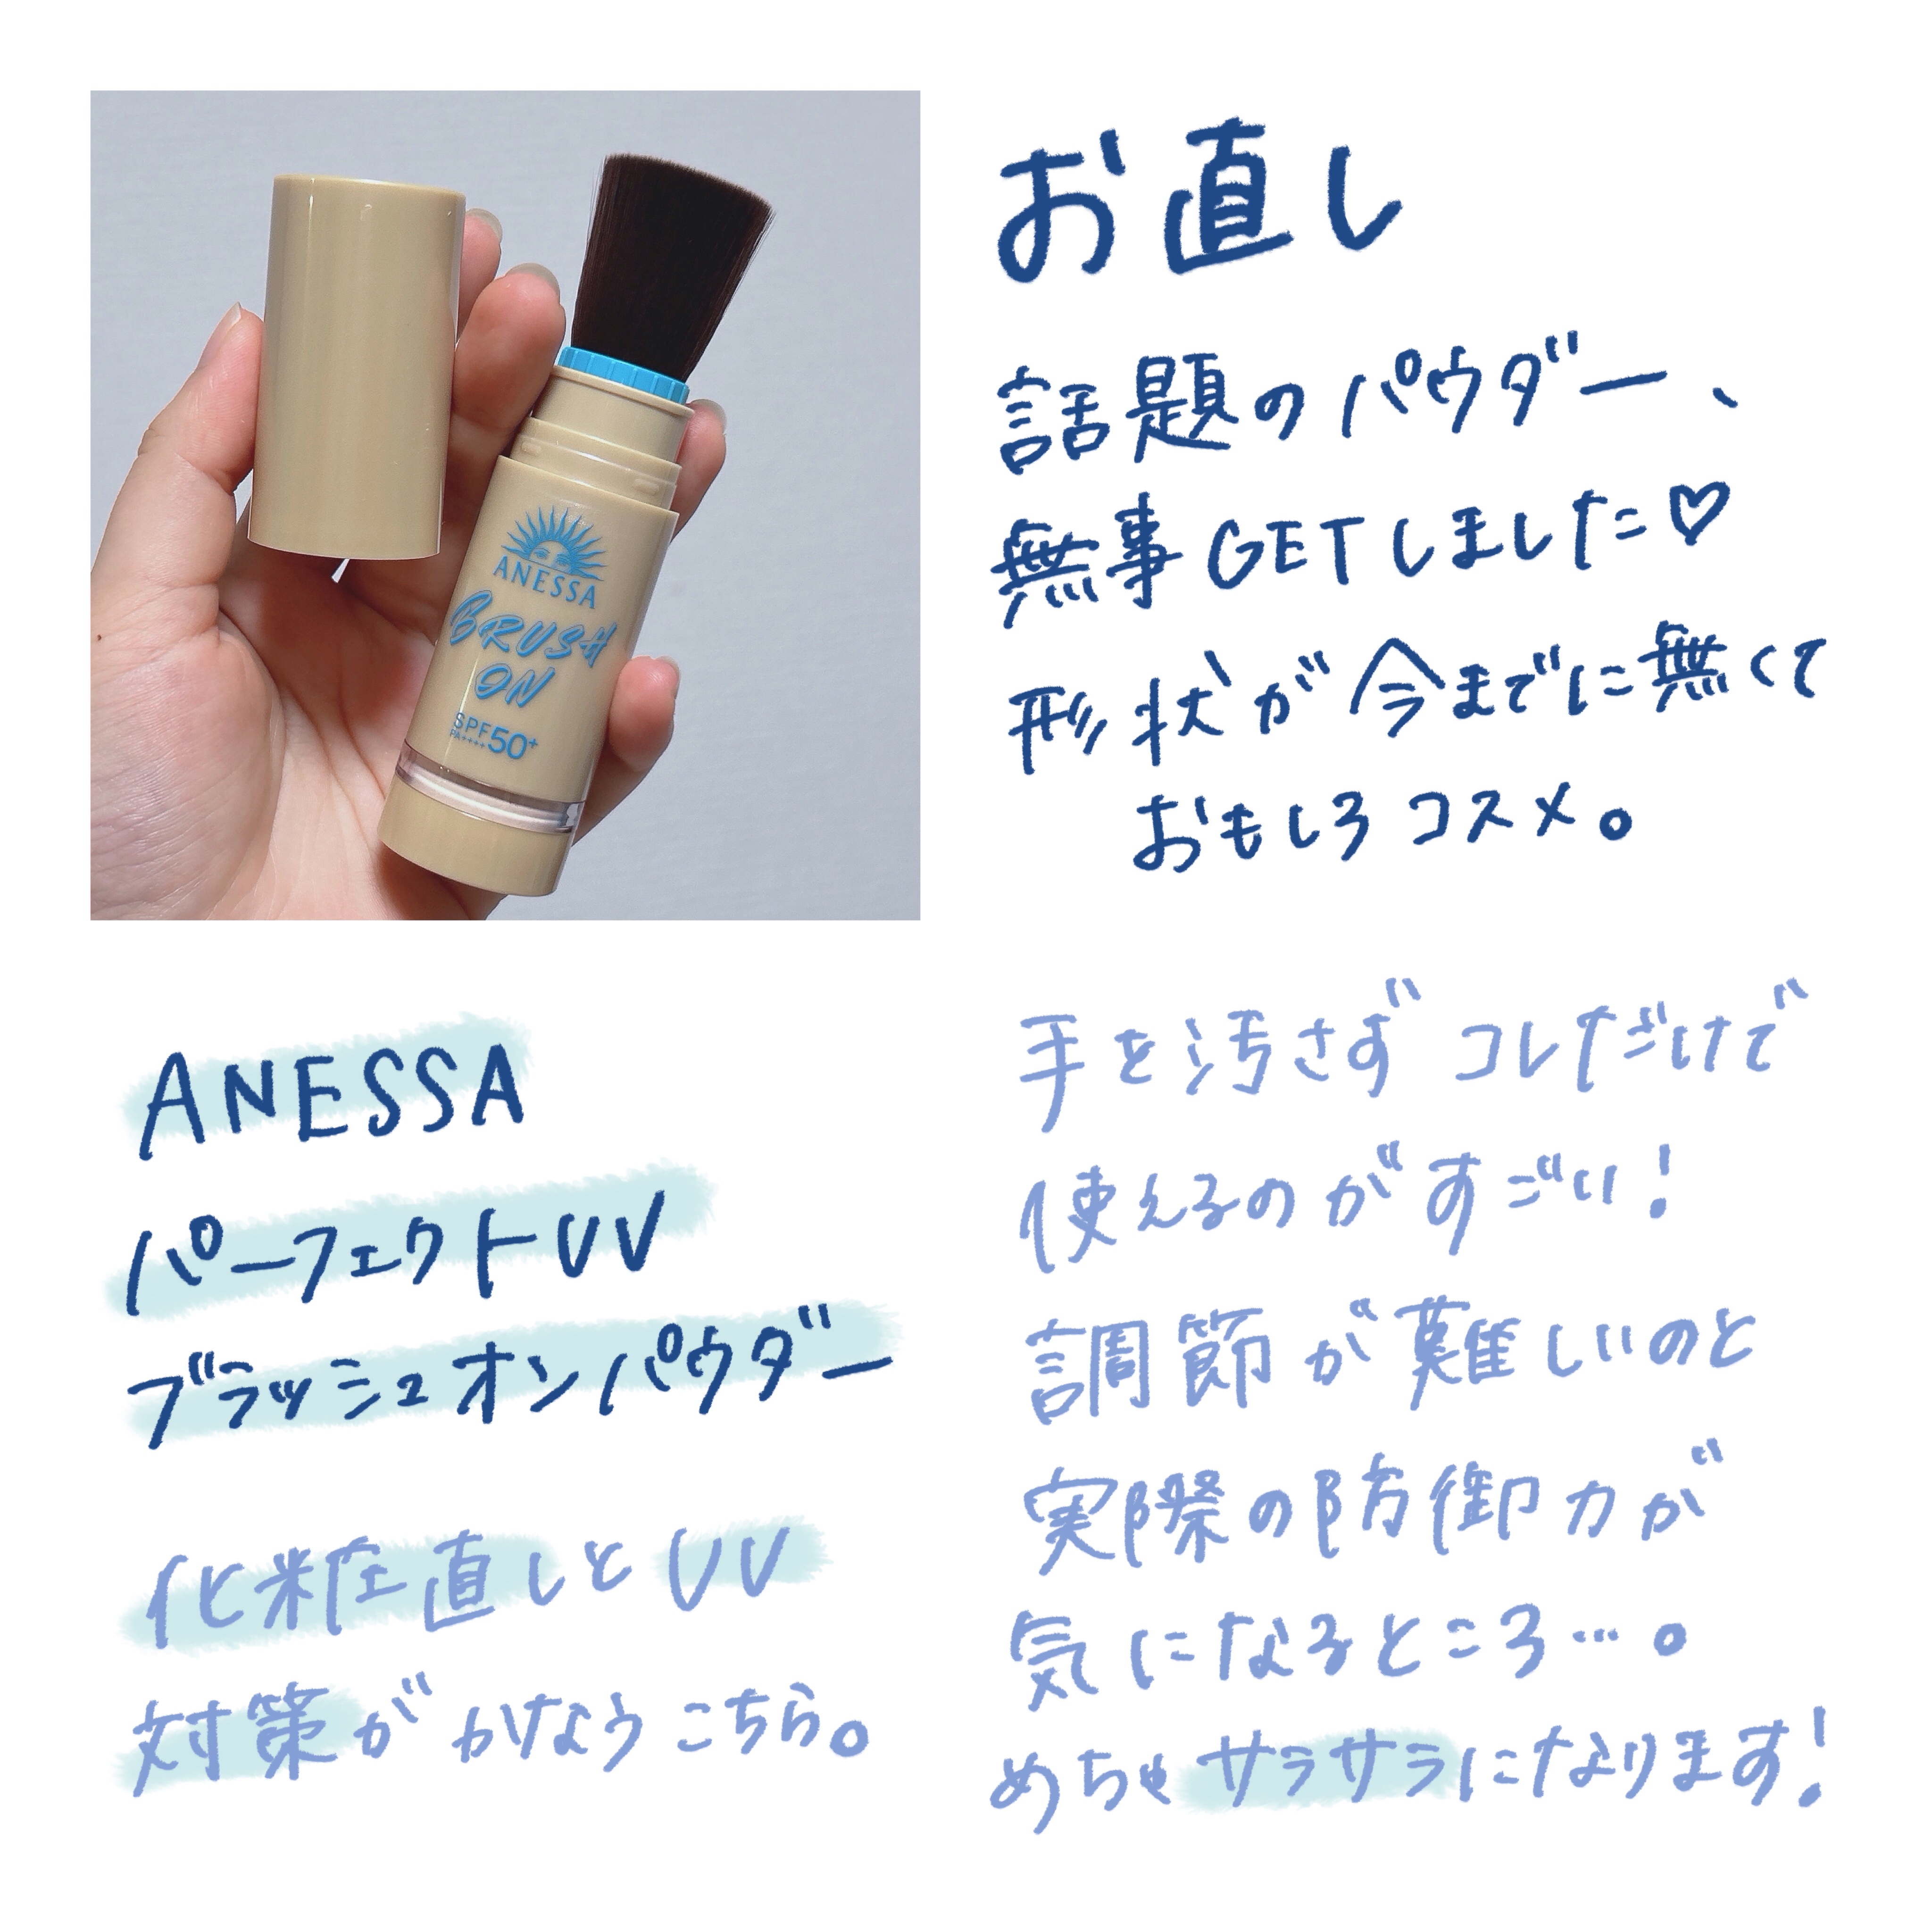 ANESSA
BRUSH
ON
SPF50+
PA++++
お直し
話題のパウダー、
無事GETしました♡
形状が今までに無くて
おもしろコスメ。
ANESSA
パーフェクトUV
ブラッシュオンパウダー
化粧直しとUV
対策がかなうこちら。
手を汚さずコレだけで
使えるのがすごい!
調節が難しいのと
実際の防御力が
気になるところ…。
めちゃサラサラになります!